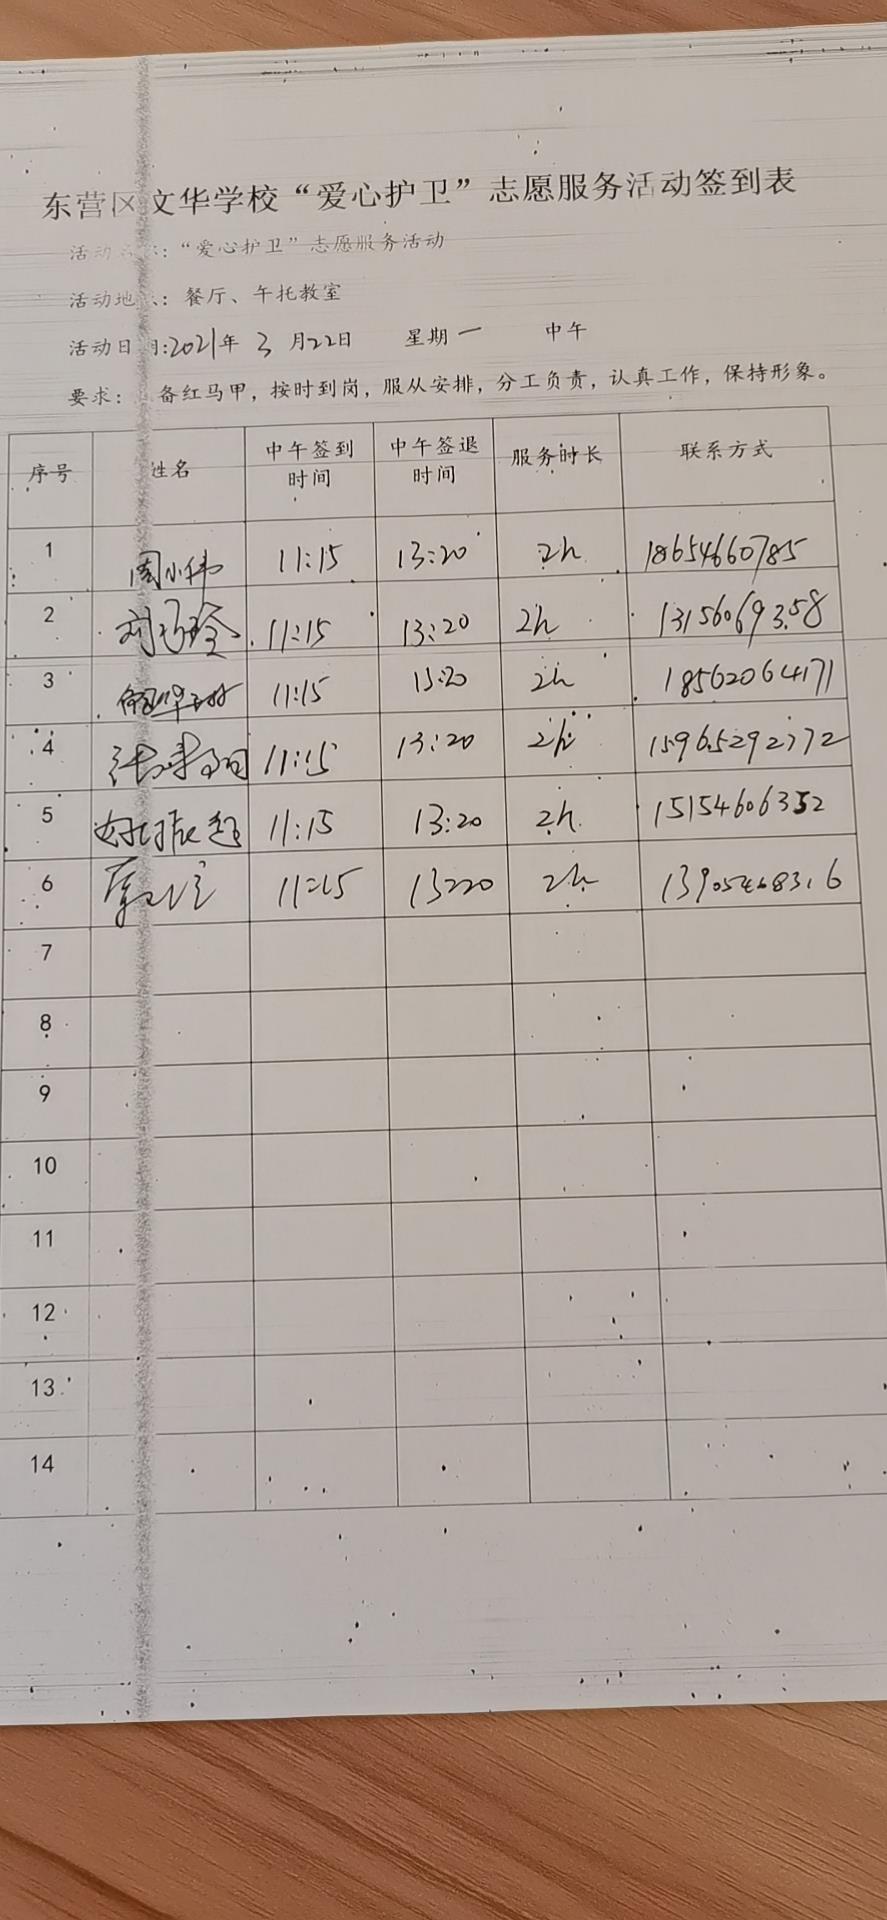 东营区文华学校“爱心护卫”志愿服务活动签到表
活动名称：“爱心护卫”志愿服务活动
活动地点：餐厅、午托教室
活动日期:2021年 3 月22日 星期一 中午
要求： 备红马甲，按时到岗，服从安排，分工负责，认真工作，保持形象。
序号 姓名 中午签到时间 中午签退时间 服务时长 联系方式
1 周小伟 11:15 13:20 2h 18654660785
2 11:15 13:20 2h 13156069358
3 11:15 13:20 2h 18562064171
4 11:15 13:20 2h 15965292772
5 11:15 13:20 2h 15154606352
6 11:15 13:20 2h 13905468316
7
8
9
10
11
12
13
14